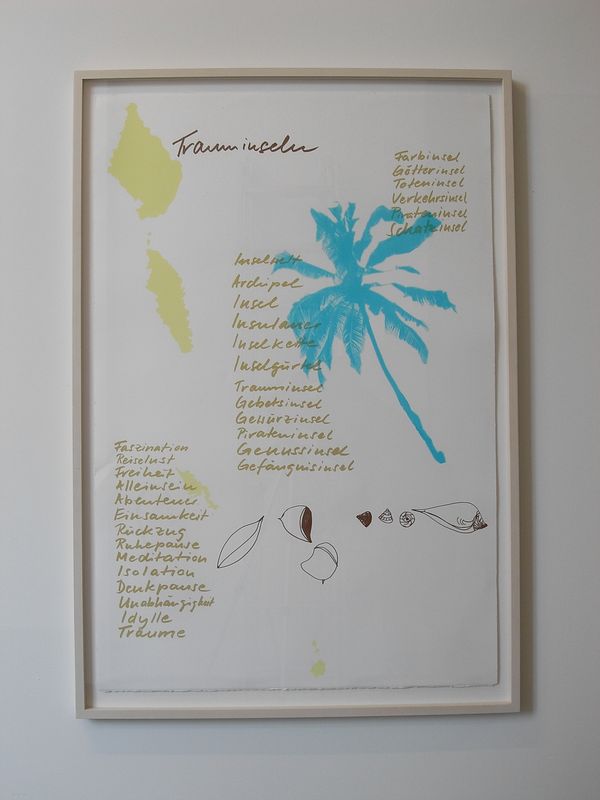 Trauminseln
Farbinsel
Götterinsel
Toteninsel
Verkehrsinsel
Pirateninsel
Schatzinsel
Inselwelt
Archipel
Insel
Insulaner
Inselkette
Inselgürtel
Trauminsel
Gebetsinsel
Gewürzinsel
Pirateninsel
Genussinsel
Gefängnisinsel
Faszination
Reiselust
Freiheit
Alleinsein
Abenteuer
Einsamkeit
Rückzug
Ruhepause
Meditation
Isolation
Denkpause
Unabhängigkeit
Idylle
Träume